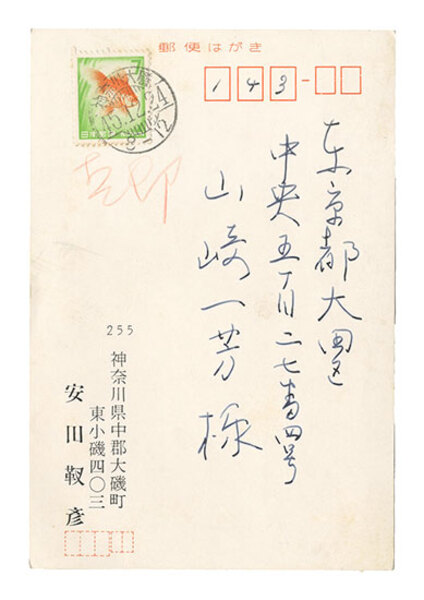 郵便はがき
143
7
日本郵便
45.12.24
8-12
東京都大田区
中央五丁目二七番四号
山崎一芳様
255
神奈川県中郡大磯町
東小磯四〇三
安田靫彦